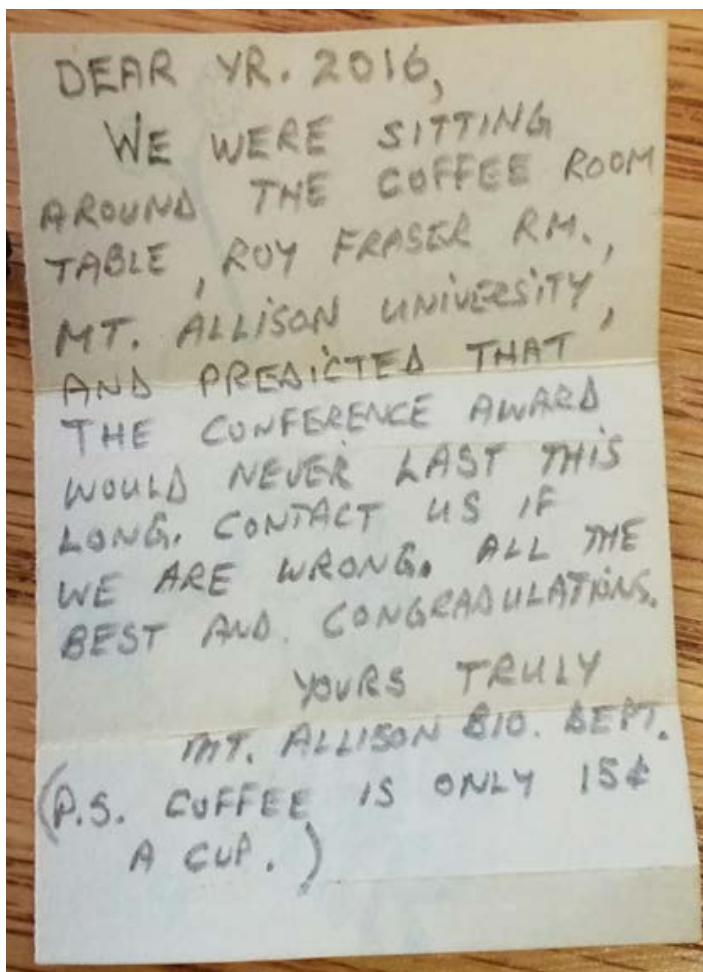 DEAR YR. 2016,
WE WERE SITTING
AROUND THE COFFEE ROOM
TABLE, ROY FRASER RM.,
MT. ALLISON UNIVERSITY,
AND PREDICTED THAT
THE CONFERENCE AWARD
WOULD NEVER LAST THIS
LONG. CONTACT US IF
WE ARE WRONG. ALL THE
BEST AND. CONGRADULATIONS.
YOURS TRULY
MT. ALLISON BIO. DEPT.
(P.S. COFFEE IS ONLY 15¢
A CUP.)